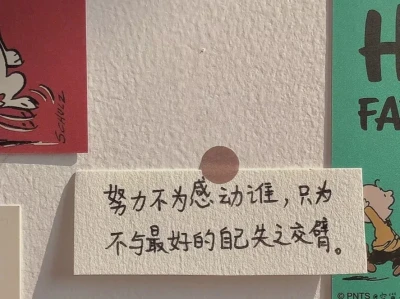 SCHULZ
H
FA
努力不为感动谁，只为
不与最好的自己失之交臂。
© PNTS